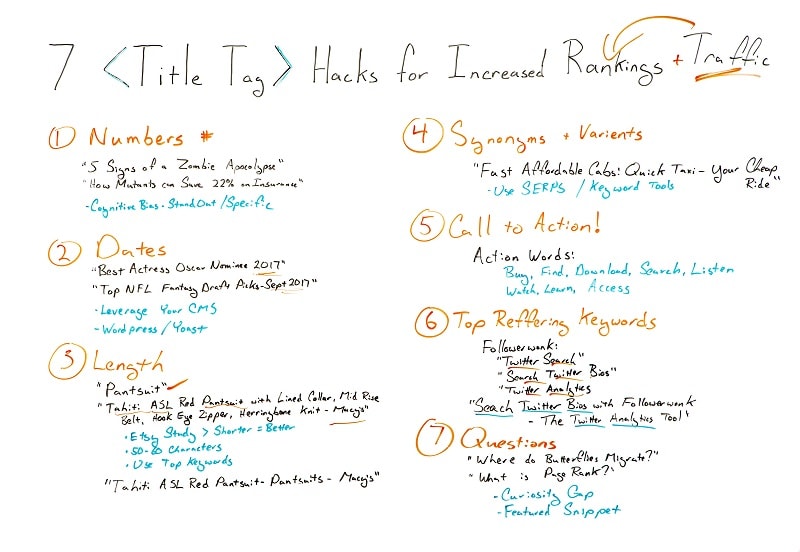 7 <Title Tag> Hacks for Increased Rankings + Traffic
1 Numbers #
"5 Signs of a Zombie Apocolypse"
"How Mutants can Save 22% on Insurance"
- Cognitive Bias - Stand Out / Specific
2 Dates
"Best Actress Oscar Nominee 2017"
"Top NFL Fantasy Draft Picks - Sept 2017"
• Leverage Your CMS
- Wordpress / Yoast
3 Length
"Pantsuit"
"Tahiti ASL Red Pantsuit with Lined Collar, Mid Rise
Belt, Hook Eye Zipper, Herringbone Knit - Macy's"
• Etsy Study > Shorter = Better
• 50-60 Characters
• Use Top Keywords
"Tahiti ASL Red Pantsuit - Pantsuits - Macy's"
4 Synonyms + Varients
"Fast Affordable Cabs: Quick Taxi - Your Cheap
Ride"
- Use SERPS / Keyword Tools
5 Call to Action!
Action Words:
Buy, Find, Download, Search, Listen
Watch, Learn, Access
6 Top Reffering Keywords
Followerwonk:
"Twitter Search"
"Search Twitter Bios"
"Twitter Analytics
"Seach Twitter Bios with Followerwonk
- The Twitter Analytics Tool"
7 Questions
"Where do Butterflies Migrate?"
"What is Page Rank?"
- Curiosity Gap
- Featured Snippet